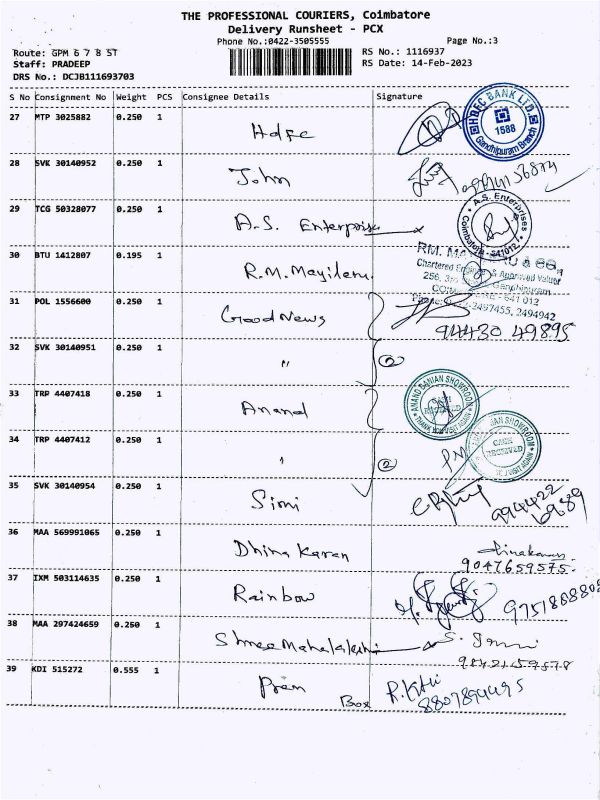 THE PROFESSIONAL COURIERS, Coimbatore
Delivery Runsheet - PCX
Phone No.:0422-3505555
Page No.:3
Route: GPM 6 7 8 ST
RS No.: 1116937
Staff: PRADEEP
RS Date: 14-Feb-2023
DRS No.: DCJB111693703
S No Consignment No Weight PCS Consignee Details Signature
27 MTP 3025882 0.250 1 Hdfc
HDFC BANK LTD. 1588 Gandhipuram Branch
28 SVK 30140952 0.250 1 John
29 TCG 50328077 0.250 1 A.S. Enterprise
A.S. Enterprises Coimbatore - 641012
30 BTU 1412807 0.195 1 R.M. Mayileru
Chartered & Approved Valuer
31 POL 1556600 0.250 1 Good News
2497455, 2494942
94430 49895
32 SVK 30140951 0.250 1 " 2
33 TRP 4407418 0.250 1 Anand
ANAND DANIAN SHOWROOM CASH RECEIVED THANK YOU VISIT AGAIN
34 TRP 4407412 0.250 1 " 2
SHOWROOM CASH RECEIVED VISIT AGAIN
35 SVK 30140954 0.250 1 Simi
994422
6989
36 MAA 569991065 0.250 1 Dhina Karan
Dinakaran
9047659575
37 IXM 503114635 0.250 1 Rainbow
38 MAA 297424659 0.250 1 Shree Mahalakshmi
39 KDI 515272 0.555 1 Prem
Box
8807894495